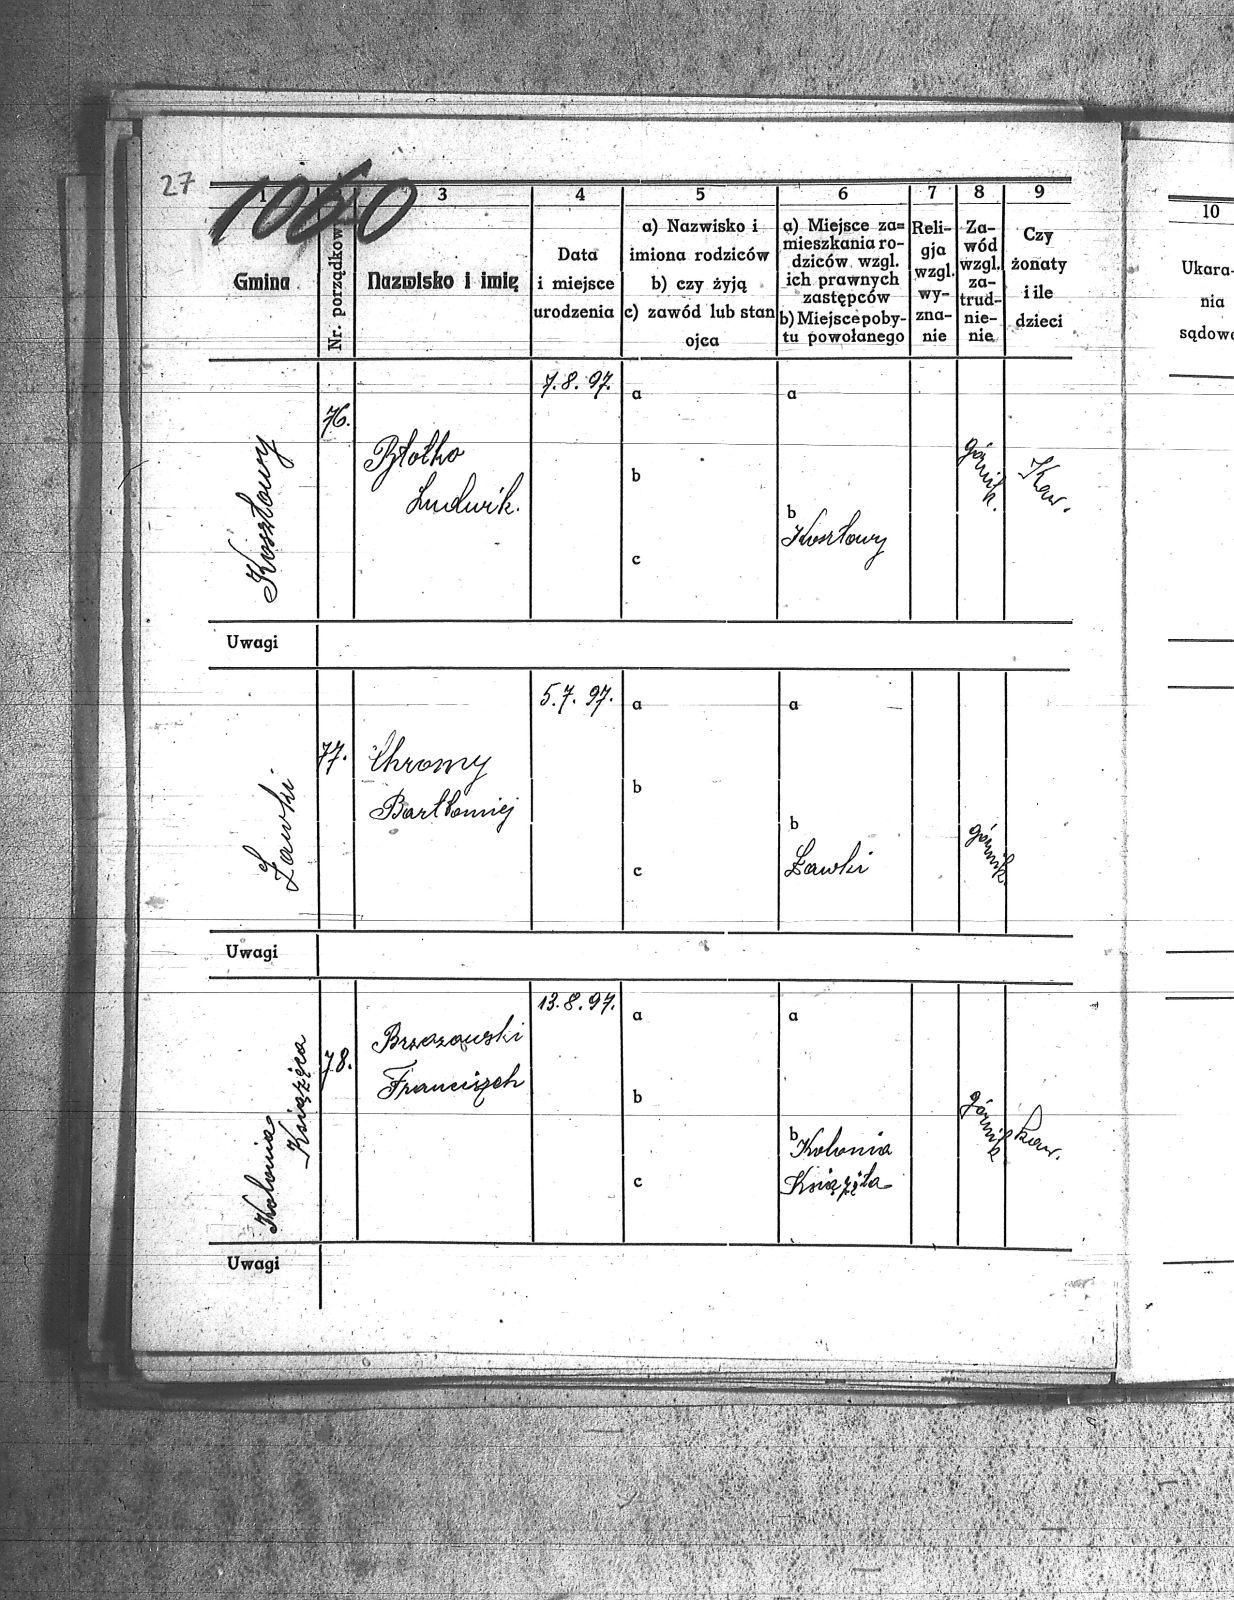 27
1060
1
3
4
5
6
7
8
9
10
Gmina
Nr. porządkow
Nazwisko i imię
Data
i miejsce
urodzenia
a) Nazwisko i
imiona rodziców
b) czy żyją
c) zawód lub stan
ojca
a) Miejsce za=
mieszkania ro-
dziców wzgl.
ich prawnych
zastępców
b) Miejsce poby-
tu powołanego
Reli-
gja
wzgl.
wy-
zna-
nie
Za-
wód
wzgl.
za-
trud-
nie-
nie
Czy
żonaty
i ile
dzieci
Ukara-
nia
sądowe
Kosztowy
76.
Ludwik.
7.8.97.
a
b
c
a
b
Kosztowy
górnik.
Kaw.
Uwagi
Ławki
77.
Chromy
Bartłomiej
5.7.97.
a
b
c
a
b
Ławki
górnik.
Uwagi
Kolonia
Książęca
78.
Brzozowski
Franciszek
13.8.97.
a
b
c
a
b Kolonia
górnik
kaw.
Uwagi